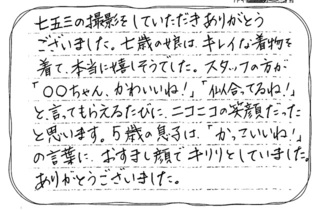 七五三の撮影をしていただきありがとう
ございました。七歳の娘は、キレイな着物を
着て、本当に嬉しそうでした。スタッフの方が
「〇〇ちゃん、かわいいね!」「似合ってるね!」
と言ってもらえるたびに、ニコニコの笑顔だった
と思います。5歳の息子は、「かっこいいね!」
の言葉に、おすまし顔でキリリとしていました。
ありがとうございました。